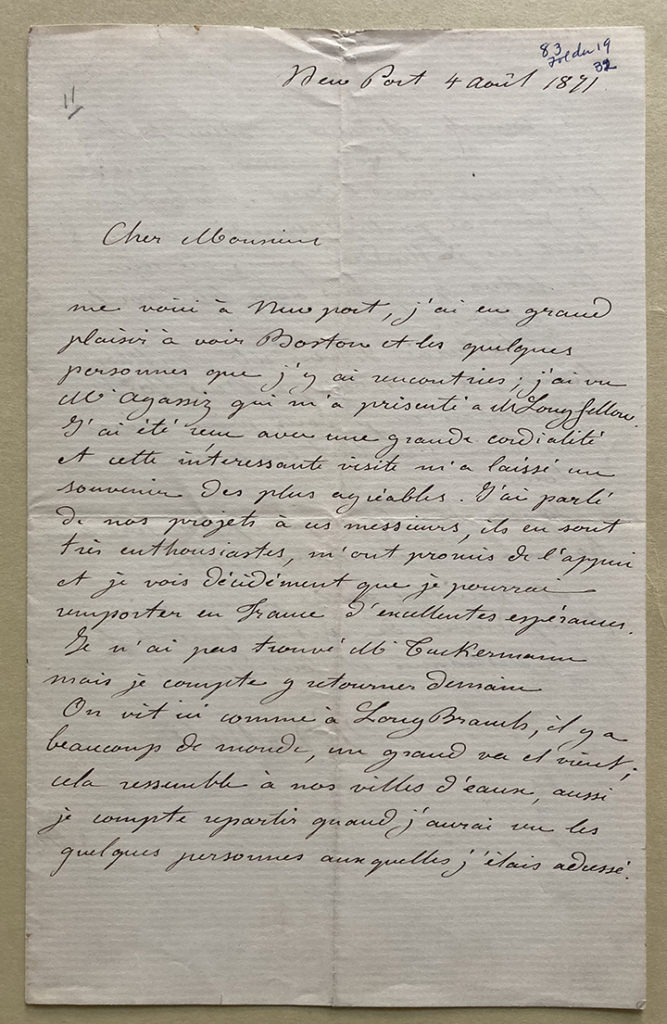 83
19
32
11
New Port 4 août 1871.
Cher Monsieur
me voici à New port, j'ai eu grand
plaisir à voir Boston et les quelques
personnes que j'y ai rencontrées ; j'ai vu
Mr Agassiz qui m'a présenté a Mr Longfellow.
J'ai été reçu avec une grande cordialité
et cette intéressante visite m'a laissé un
souvenir des plus agréables. J'ai parlé
de nos projets à ces messieurs, ils en sont
très enthousiastes, m'ont promis de l'appui
et je vois décidément que je pourrai
remporter en France d'excellentes espérances.
Je n'ai pas trouvé Mr Tuckermann
mais je compte y retourner demain
On vit ici comme à Long Branch, il y a
beaucoup de monde, un grand va et vient ;
cela ressemble à nos villes d'eaux, aussi
je compte repartir quand j'aurai vu les
quelques personnes auxquelles j'étais adressé.